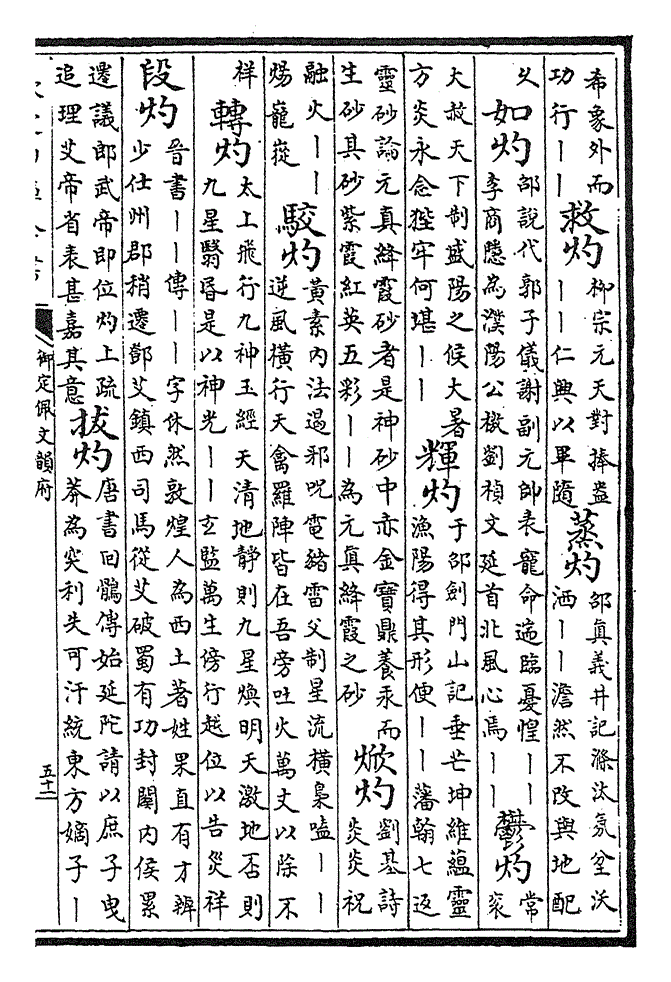 希象外而
功行丨丨
救灼
柳宗元天對捧盎
丨丨仁興以畢隨
蒸灼
邵真義井記滌汰氛坌沃
洒丨丨澹然不改與地配
乆
如灼
邵說代郭子儀謝副元帥表寵命遄臨憂惶丨丨
李商隱為濮陽公檄劉稹文延首北風心焉丨丨
鬱灼
常
衮
大赦天下制盛陽之候大暑
方炎永念狴牢何堪丨丨
輝灼
于邵劍門山記垂芒坤維蘊靈
漁陽得其形便丨丨藩翰七返
靈砂論元真絳霞砂者是神砂中亦金寶鼎養汞而
生砂其砂紫霞紅英五彩丨丨為元真絳霞之砂
焮灼
劉基詩
炎炎祝
融火丨丨
煬寵嵸
駮灼
黃素內法遏邪呪電緒雷父制星流橫梟嗑丨丨
逆風橫行天禽羅陣皆在吾旁吐火萬丈以除不
祥
轉灼
太上飛行九神玉經天清地靜則九星煥明天激地否則
九星翳昏是以神光丨丨玄監萬生傍行越位以告災祥
段灼
晉書丨丨傳丨丨字休然敦煌人為西土著姓果直有才辨
少仕州郡稍遷鄧艾鎮西司馬從艾破蜀有功封關內侯累
遷議郎武帝即位灼上疏
追理艾帝省表甚嘉其意
拔灼
唐書回鶻傳始延陀請以庶子曳
莽為突利失可汗統東方嫡子丨
御定佩文韻府
五十二